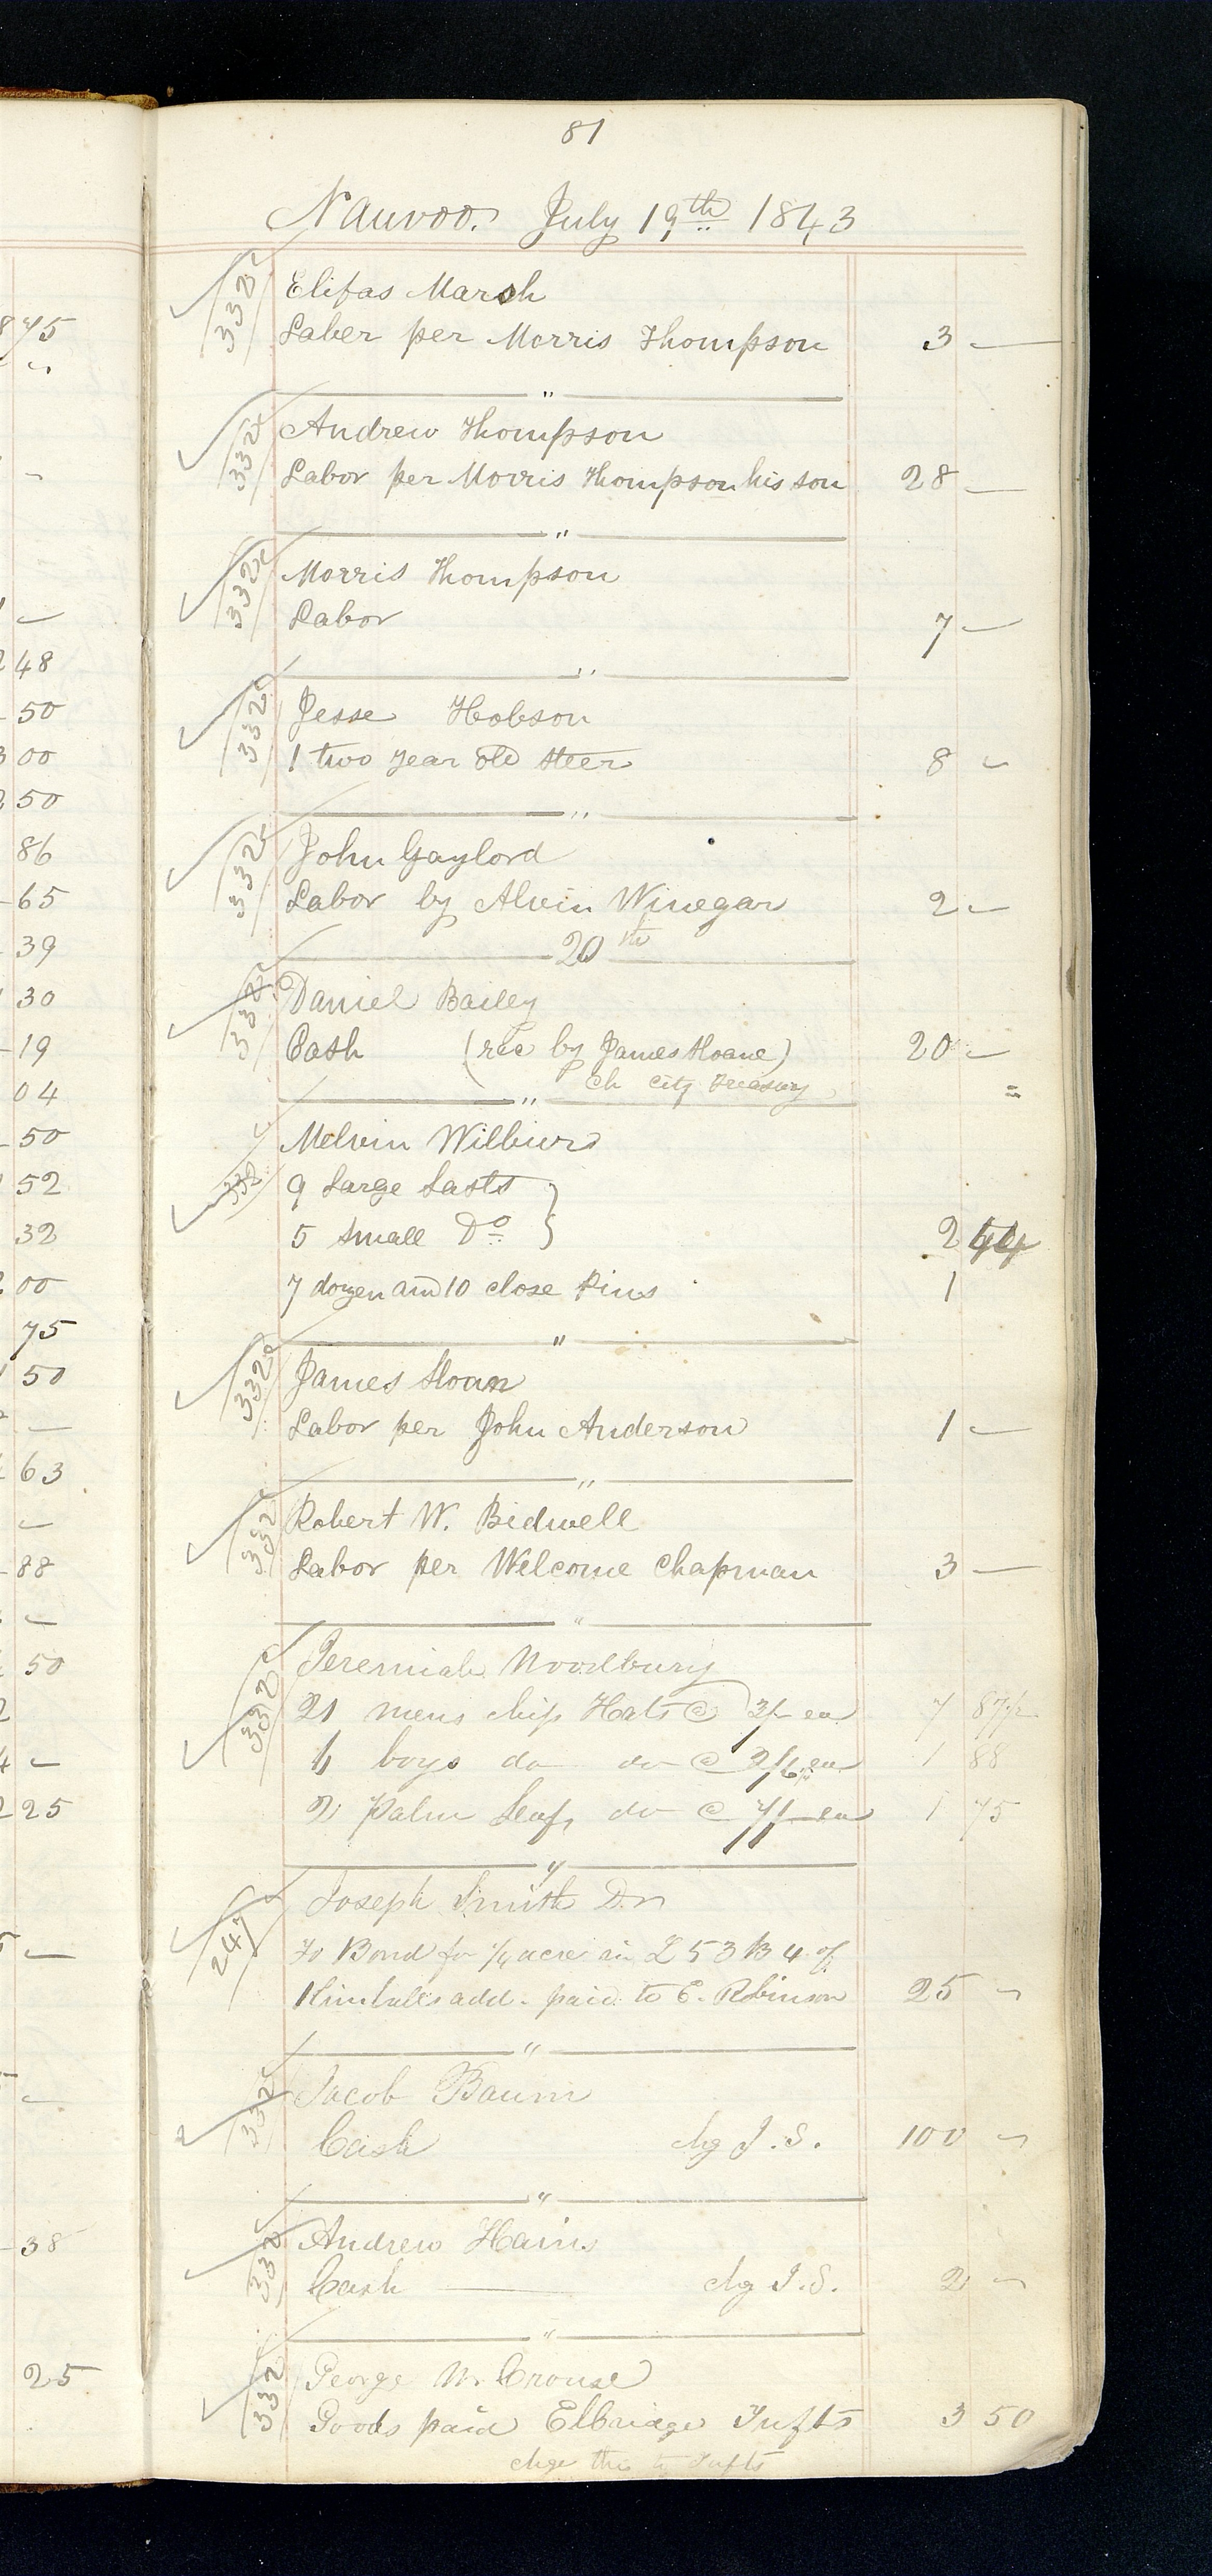 81
Nauvoo. July 19th 1843
332 Elifas Marsh
Laber per Morris Thompson 3 —
"
332 Andrew Thompson
Labor per Morris Thompson his son 28 —
"
332 Morris Thompson
Labor 7 —
"
332 Jesse Hobson
1 two year old steer 8 —
"
332 John Gaylord
Labor by Alvin Winegar 2 —
20th
332 Daniel Bailey
Cash (rec by James Sloane) 20 —
Ch City Treasury
"
Melvin Wilbur
332 9 Large Lasts }
5 small Do } 2 44
7 dozen and 10 close Pins 1
"
332 James Sloan
Labor per John Anderson 1 —
"
332 Robert W. Bidwell
Labor per Welcome Chapman 3 —
"
332 Jeremiah Woodbury
21 mens chip Hats @ 3/- ea 7 87½
boys do do @ 2/6 ea 1 88
2 Palm Leaf do @ 7/- ea 1 75
"
247 Joseph Smith Dr
To Bond for ¼ acre in L 53 B 4 of
Kimballs add. paid to E. Robinson 25 —
"
332 Jacob Baum
Cash chg J. S. 100 —
"
332 Andrew Hains
Cash — chg J. S. 2 —
"
332 George W. Crouse
Goods paid Elbridge Tufts 3 50
chge this to Tufts
75
48
50
00
50
86
65
39
30
19
04
50
52
32
00
75
50
63
88
50
25
38
25